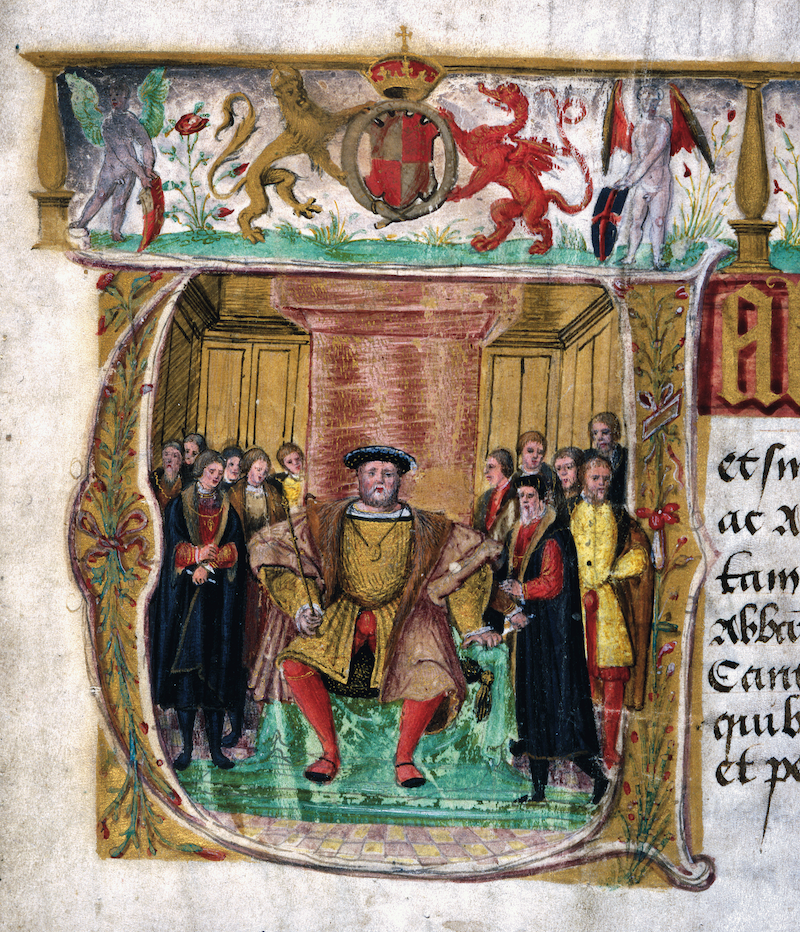 A
et
ac A
tam
Abbā
Cant
quib
et p